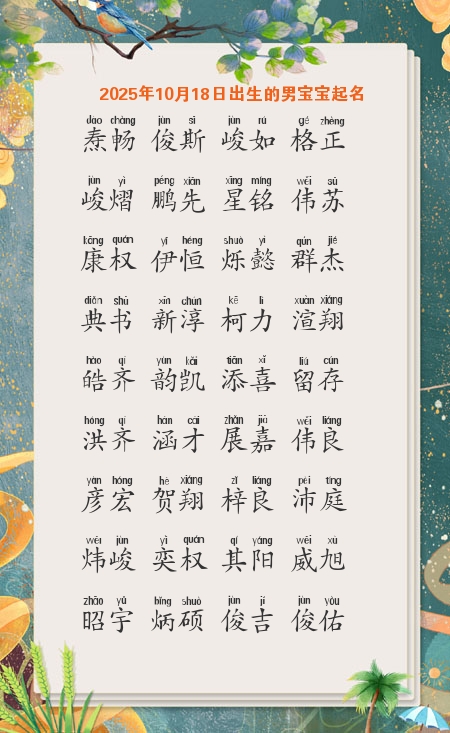 2025年10月18日出生的男宝宝起名
dào chàng jùn sī jùn rú gé zhèng
焘畅 俊斯 峻如 格正
jùn yì péng xiān xīng míng wěi sū
峻熠 鹏先 星铭 伟苏
kāng quán yī héng shuò yì qún jié
康权 伊恒 烁懿 群杰
diǎn shū xīn chún kē lì xuān xiáng
典书 新淳 柯力 渲翔
hào qí yùn kǎi tiān xǐ liú cún
皓齐 韵凯 添喜 留存
hóng qí hán cái zhǎn jiā wěi liáng
洪齐 涵才 展嘉 伟良
yàn hóng hè xiáng zǐ liáng pèi tíng
彦宏 贺翔 梓良 沛庭
wěi jùn yì quán qí yáng wēi xù
炜峻 奕权 其阳 威旭
zhāo yǔ bǐng shuò jùn jí jùn yòu
昭宇 炳硕 俊吉 俊佑